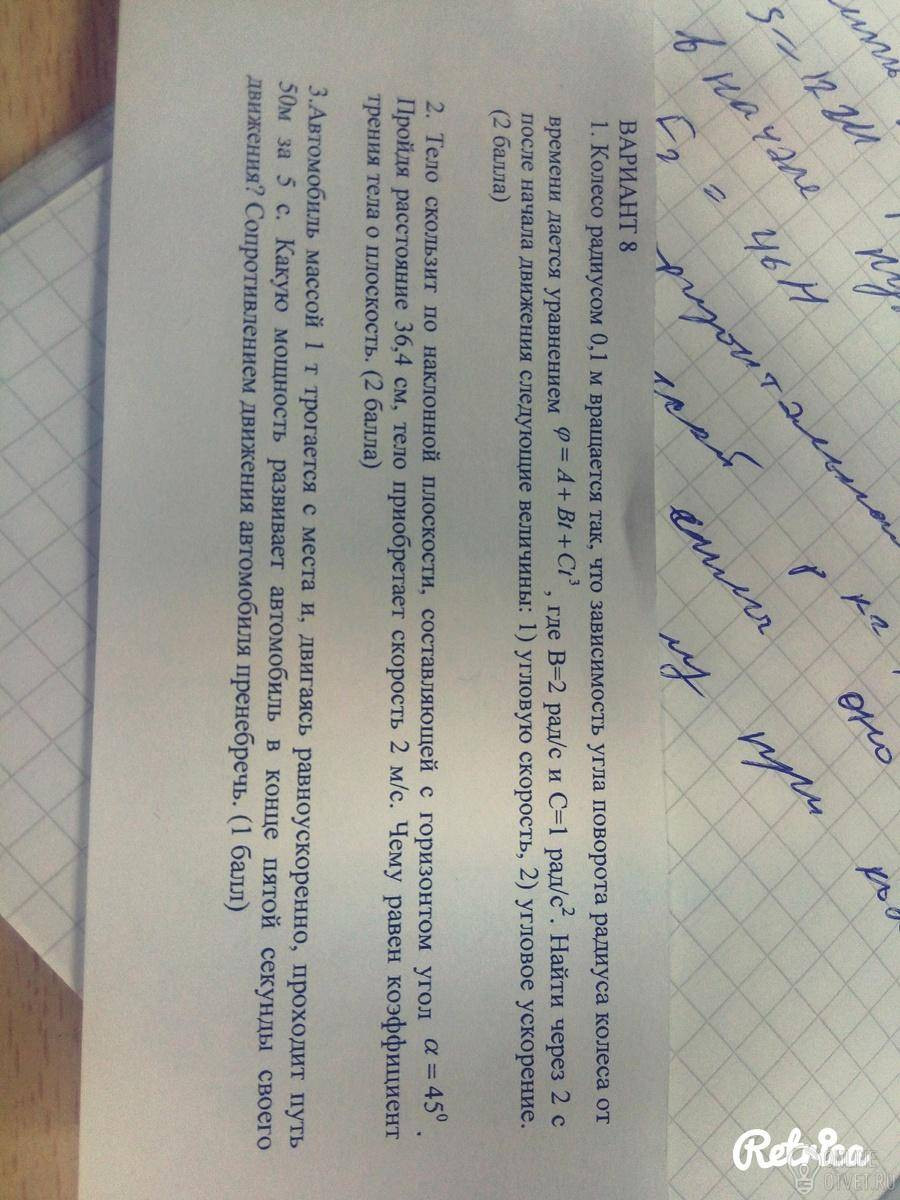 ВАРИАНТ 8
1. Колесо радиусом 0,1 м вращается так, что зависимость угла поворота радиуса колеса от
времени дается уравнением φ = A + Bt + Ct³, где B=2 рад/с и C=1 рад/с². Найти через 2 с
после начала движения следующие величины: 1) угловую скорость, 2) угловое ускорение.
(2 балла)
2. Тело скользит по наклонной плоскости, составляющей с горизонтом угол α = 45⁰ .
Пройдя расстояние 36,4 см, тело приобретает скорость 2 м/с. Чему равен коэффициент
трения тела о плоскость. (2 балла)
3.Автомобиль массой 1 т трогается с места и, двигаясь равноускоренно, проходит путь
50м за 5 с. Какую мощность развивает автомобиль в конце пятой секунды своего
движения? Сопротивлением движения автомобиля пренебречь. (1 балл)
в начале
Retrica
ONLINE
OTVET.RU